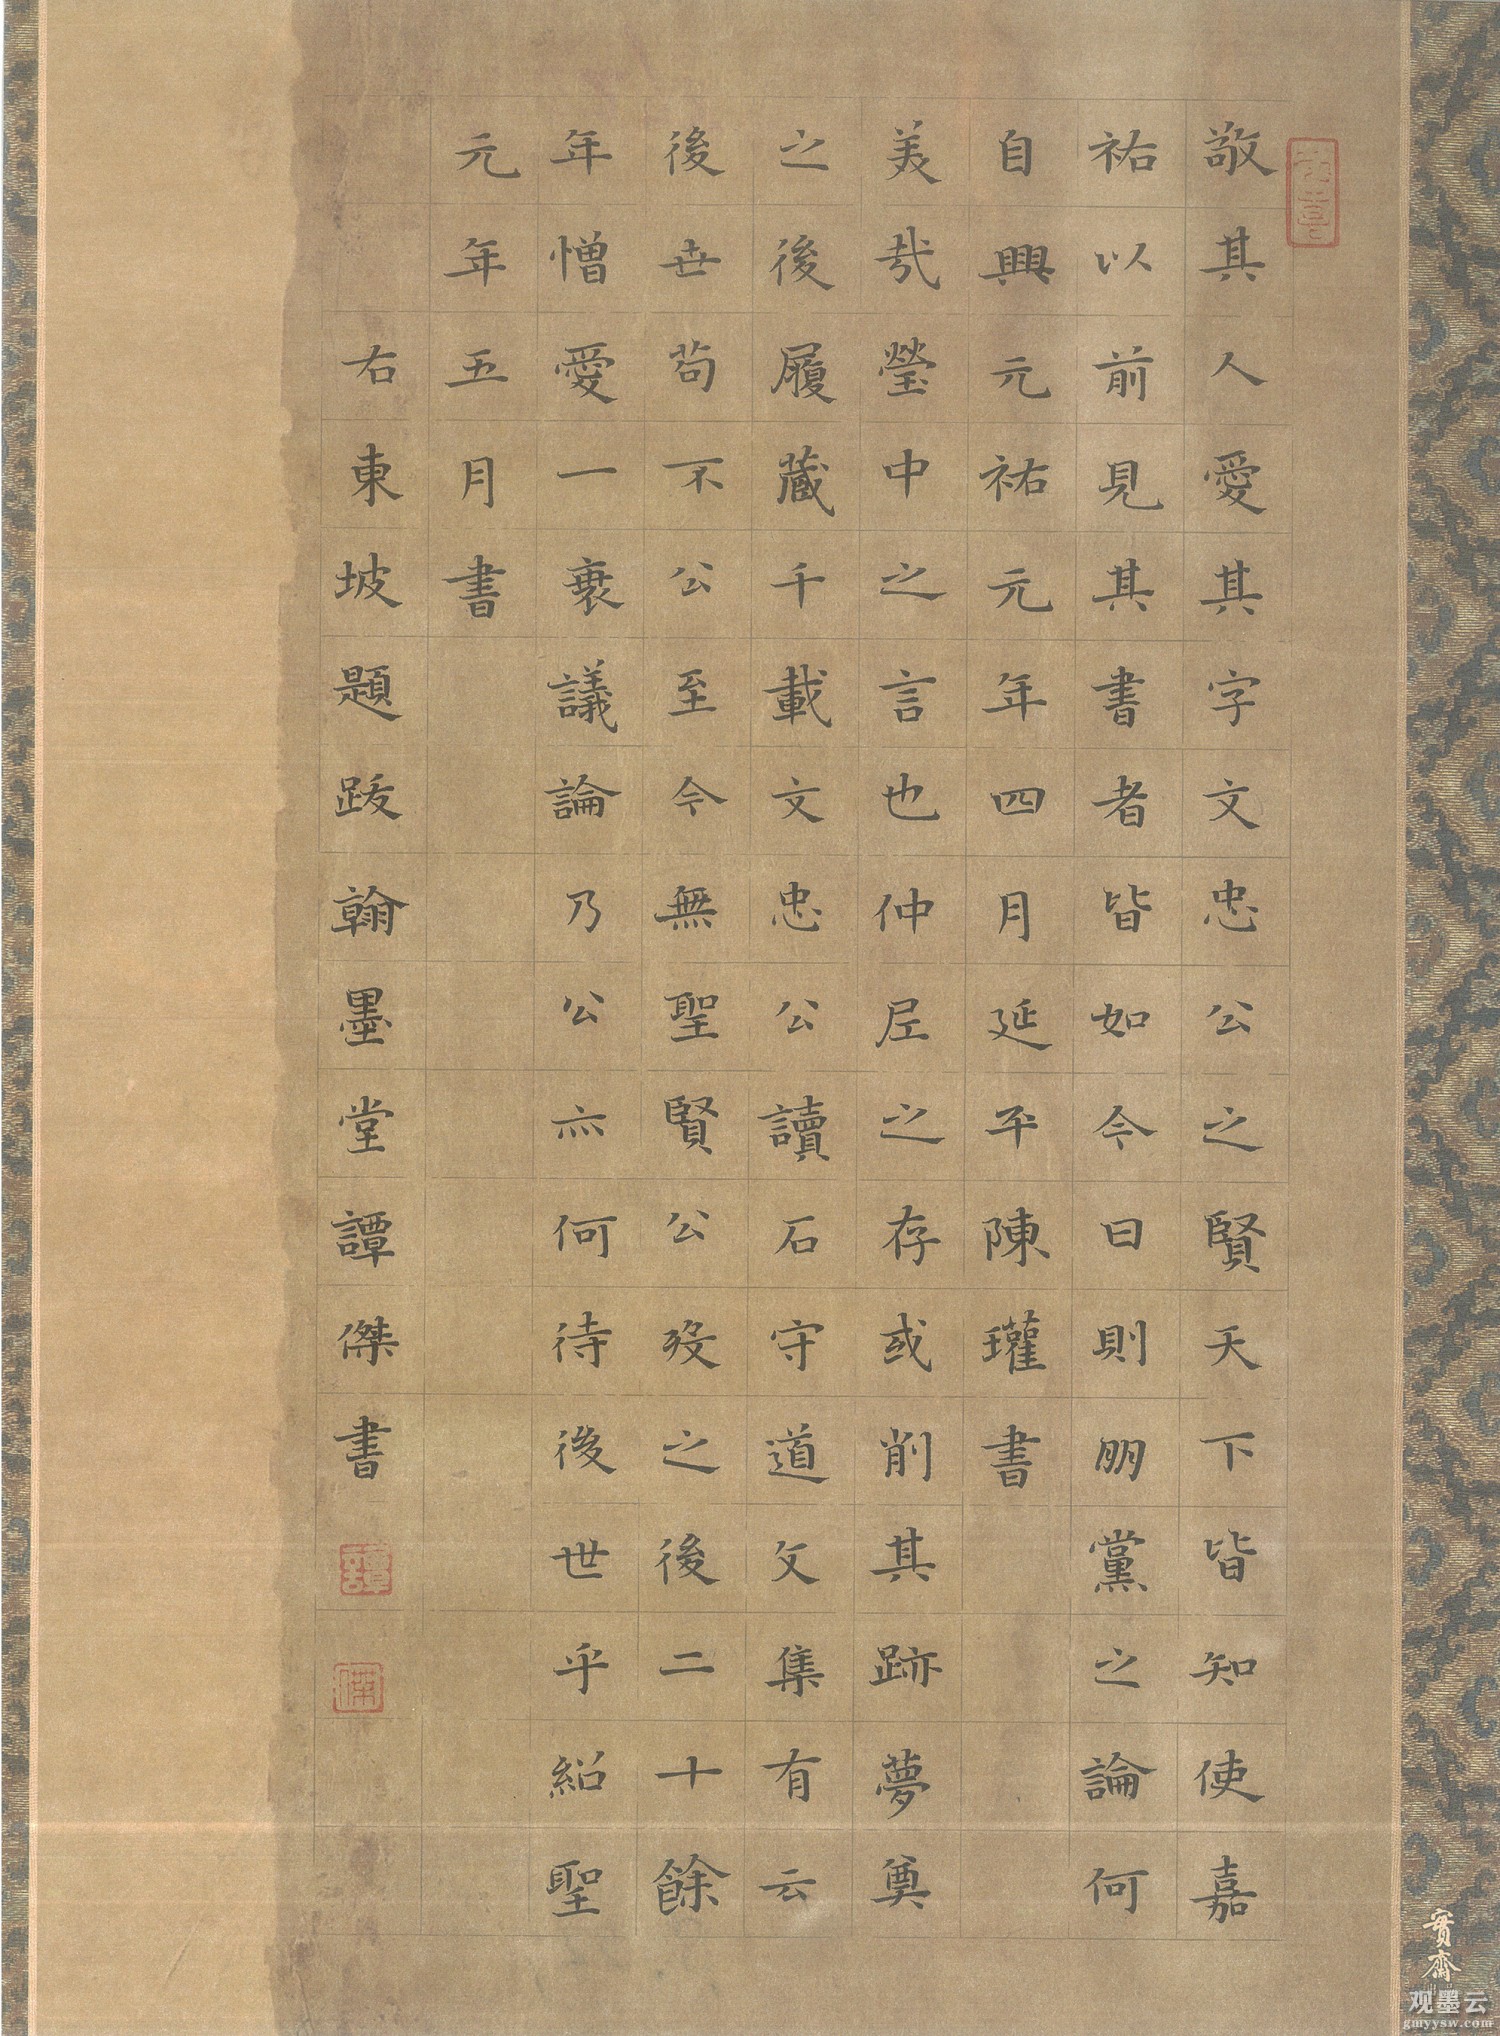 敬其人愛其字文忠公之賢天下皆知使嘉
祐以前見其書者皆如今日則朋黨之論何
自興元祐元年四月延平陳瓘書
美哉瑩中之言也仲尼之存或削其跡夢奠
之後履藏千載文忠公讀石守道文集有云
後世苟不公至今無聖賢公歿之後二十餘
年憎愛一衰議論乃公亦何待後世乎紹聖
元年五月書
右東坡題跋翰墨堂譚傑書
譚
傑
實齋
观墨云
gmyysw.com